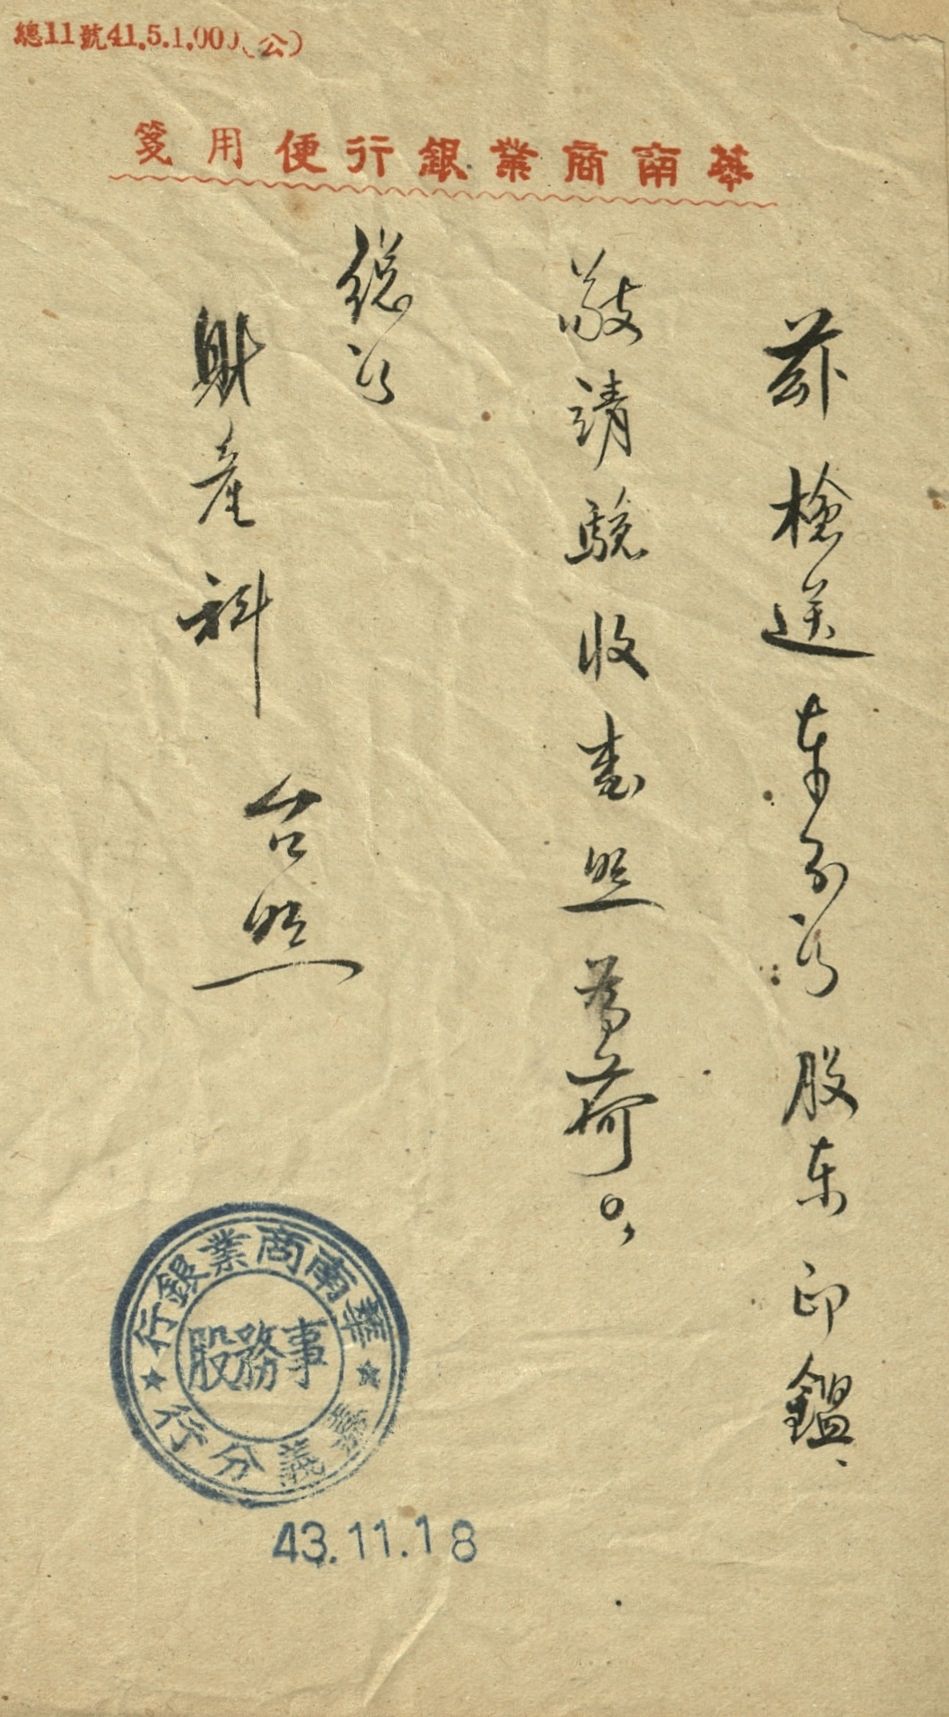 總11號41.5.1,000(公)
華南商業銀行便用箋
茲檢送本分行股東印鑑、
敬請驗收查照為荷。
總行
財產科 台照
華南商業銀行
嘉義分行
事務股
43.11.18